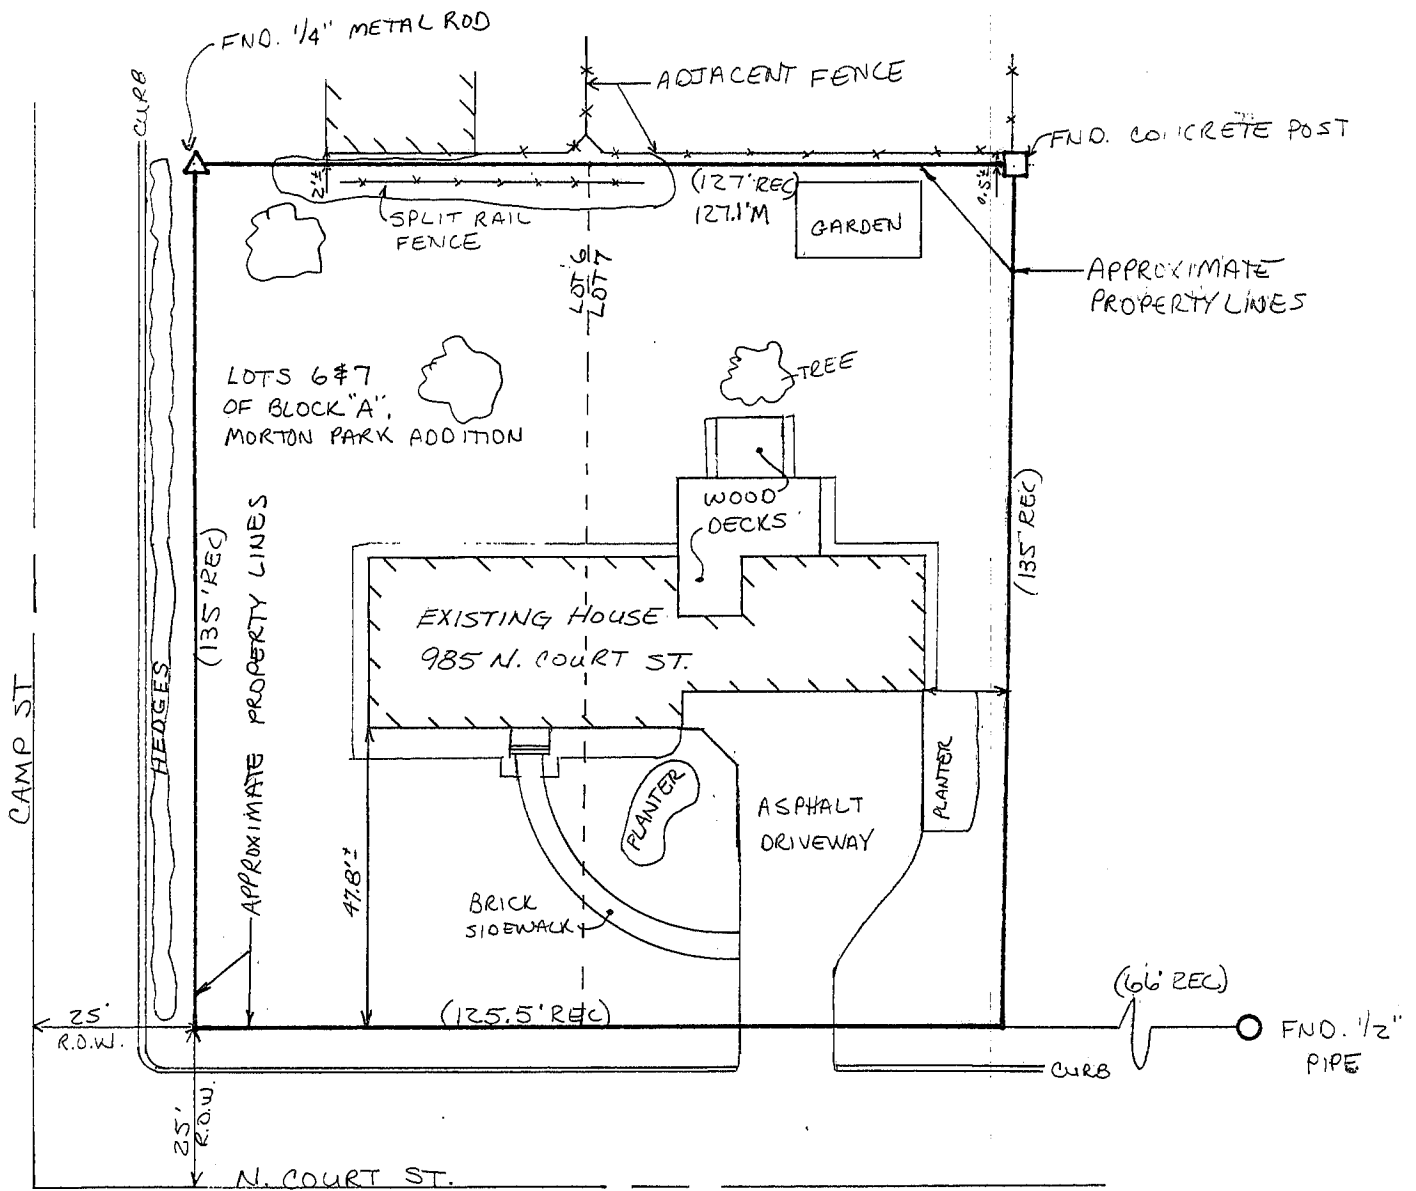 FND. 1/4" METAL ROD
CURB
ADJACENT FENCE
FND. CONCRETE POST
2'±
(127' REC)
127.1'M
0.5'±
SPLIT RAIL
FENCE
GARDEN
LOT 6
LOT 7
APPROXIMATE
PROPERTY LINES
TREE
LOTS 6 & 7
OF BLOCK "A",
MORTON PARK ADDITION
WOOD
DECKS
(135' REC)
(135' REC)
APPROXIMATE PROPERTY LINES
EXISTING HOUSE
985 N. COURT ST.
HEDGES
CAMP ST
PLANTER
PLANTER
ASPHALT
DRIVEWAY
47.8'±
BRICK
SIDEWALK
(125.5' REC)
(66' REC)
25'
R.O.W.
FND. 1/2"
PIPE
CURB
25'
R.O.W.
N. COURT ST.